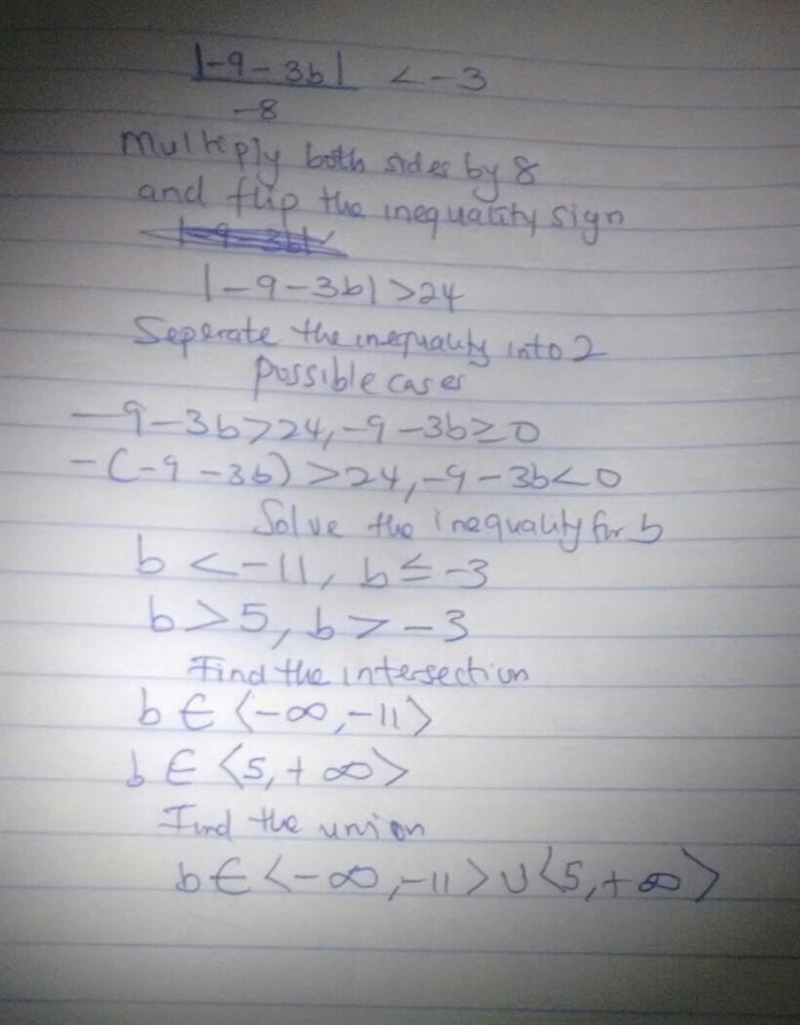 |-9-3b| < -3
-8
Multiply both sides by 8
and flip the inequality sign
|-9-3b| > 24
Seperate the inequality into 2
possible cases
-9-3b>24, -9-3b≥0
-(-9-3b) >24, -9-3b<0
Solve the inequality for b
b < -11, b ≤ -3
b > 5, b > -3
Find the intersection
b ∈ <-∞, -11>
b ∈ <5, +∞>
Find the union
b ∈ <-∞, -11> ∪ <5, +∞>